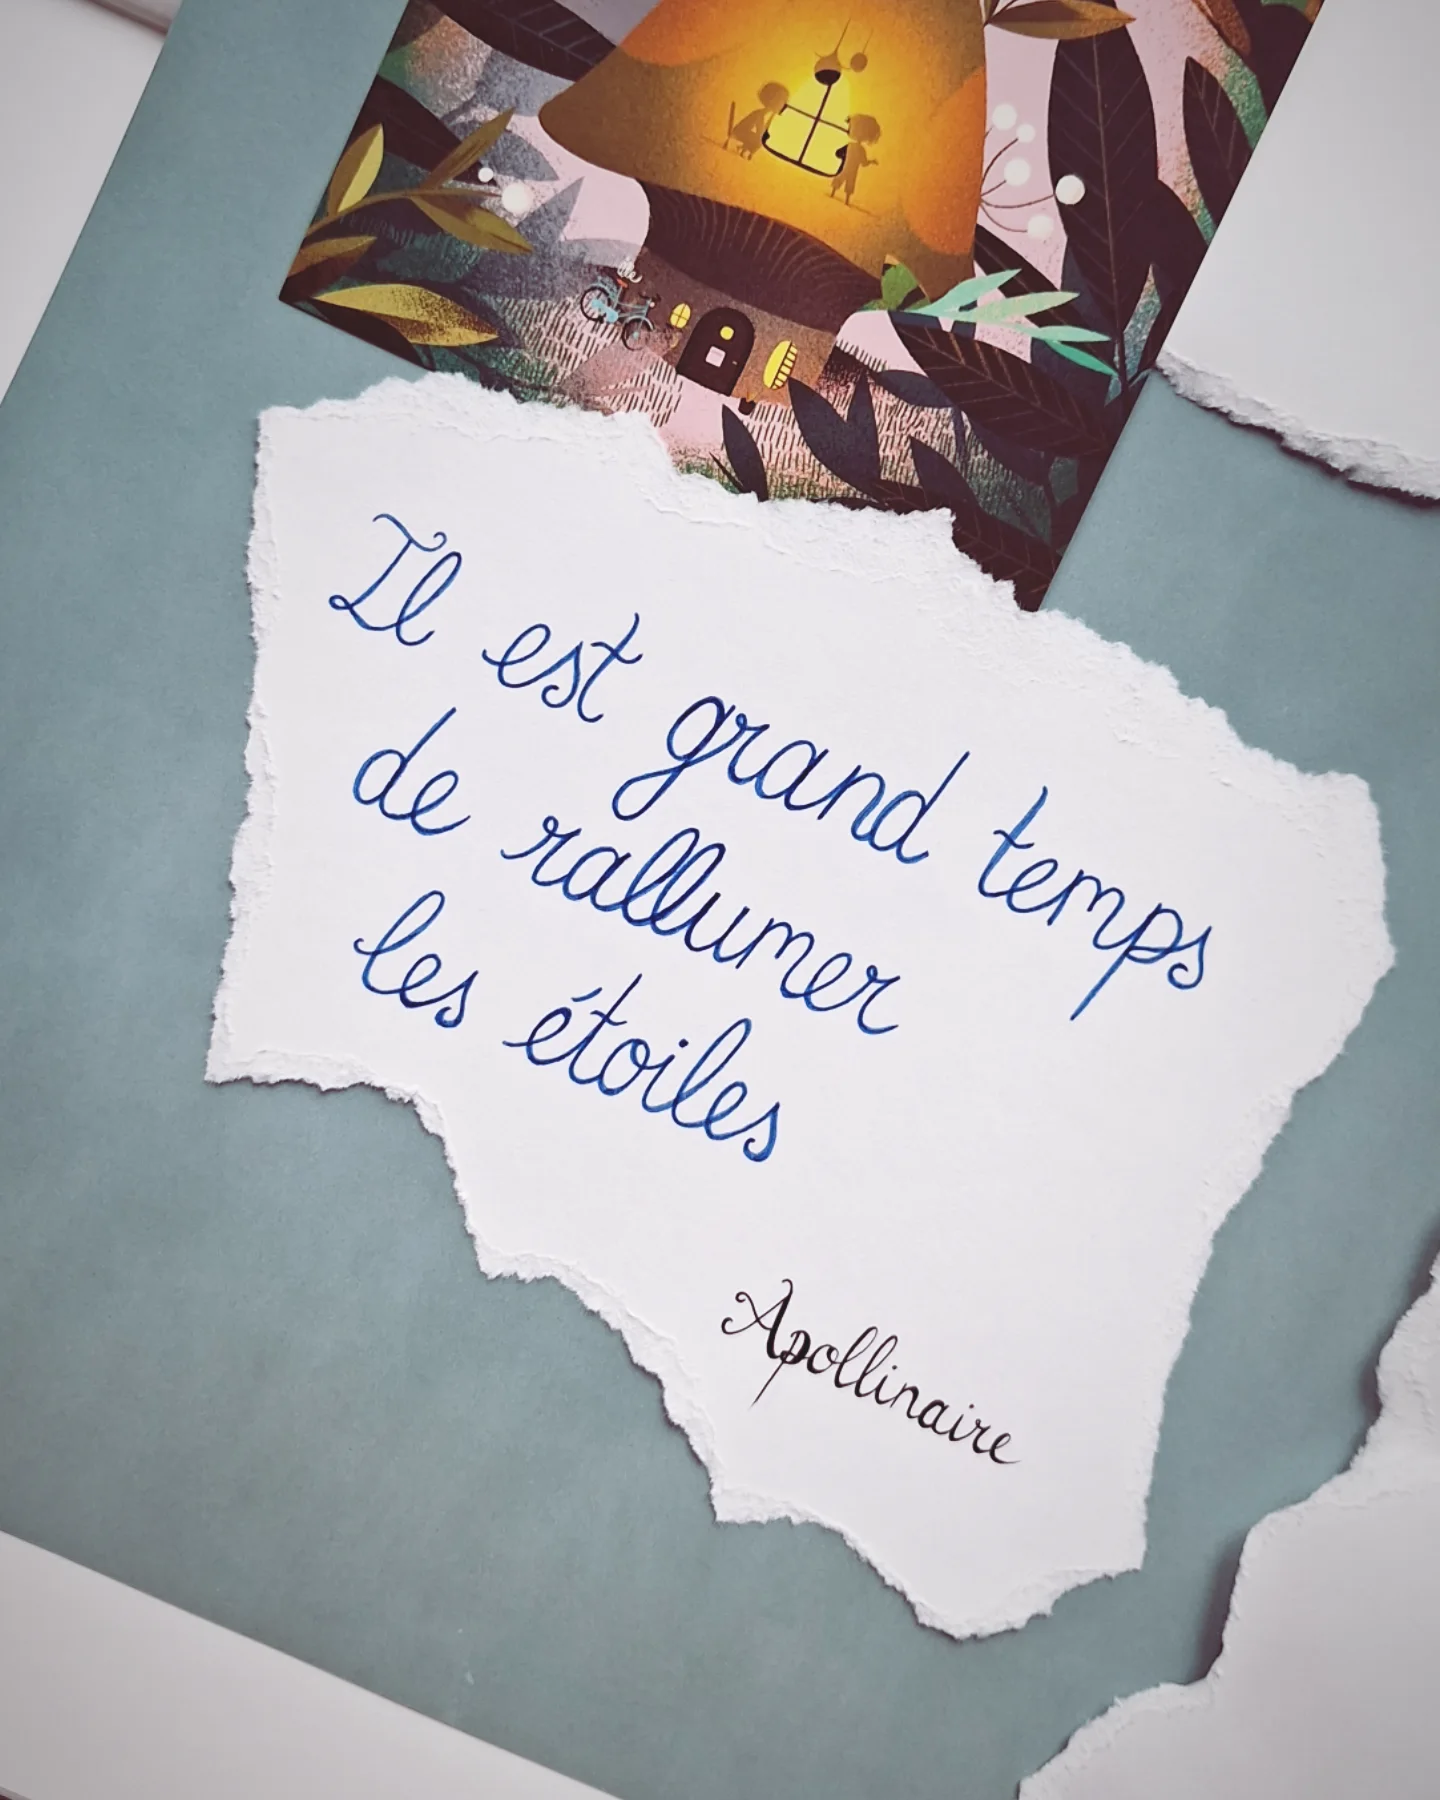 Il est grand temps
de rallumer
les étoiles
Apollinaire